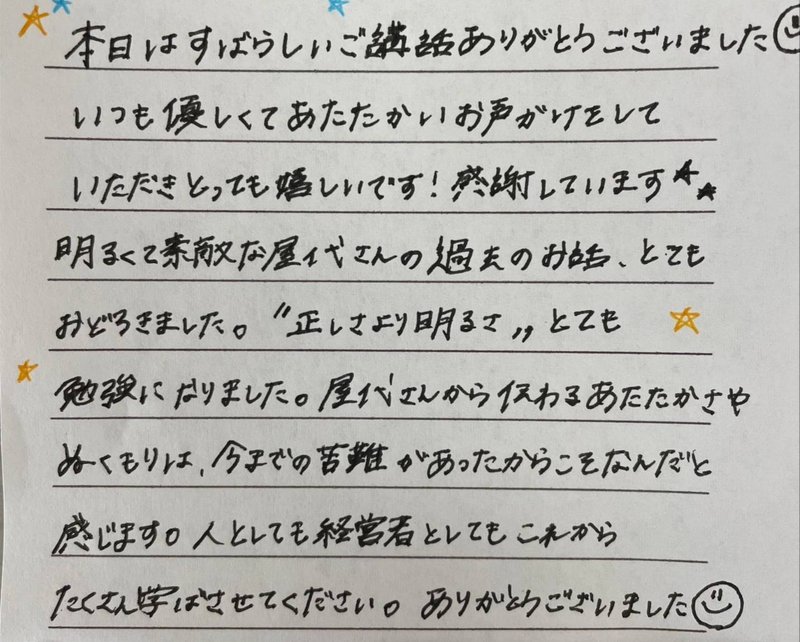 本日はすばらしいご講話ありがとうございました
いつも優しくてあたたかいお声がけをして
いただきとっても嬉しいです！感謝しています
明るくて素敵な屋代さんの過去のお話、とても
おどろきました。〝正しさより明るさ〟とても
勉強になりました。屋代さんから伝わるあたたかさや
ぬくもりは、今までの苦難があったからこそなんだと
感じます。人としても経営者としてもこれから
たくさん学ばさせてください。ありがとうございました